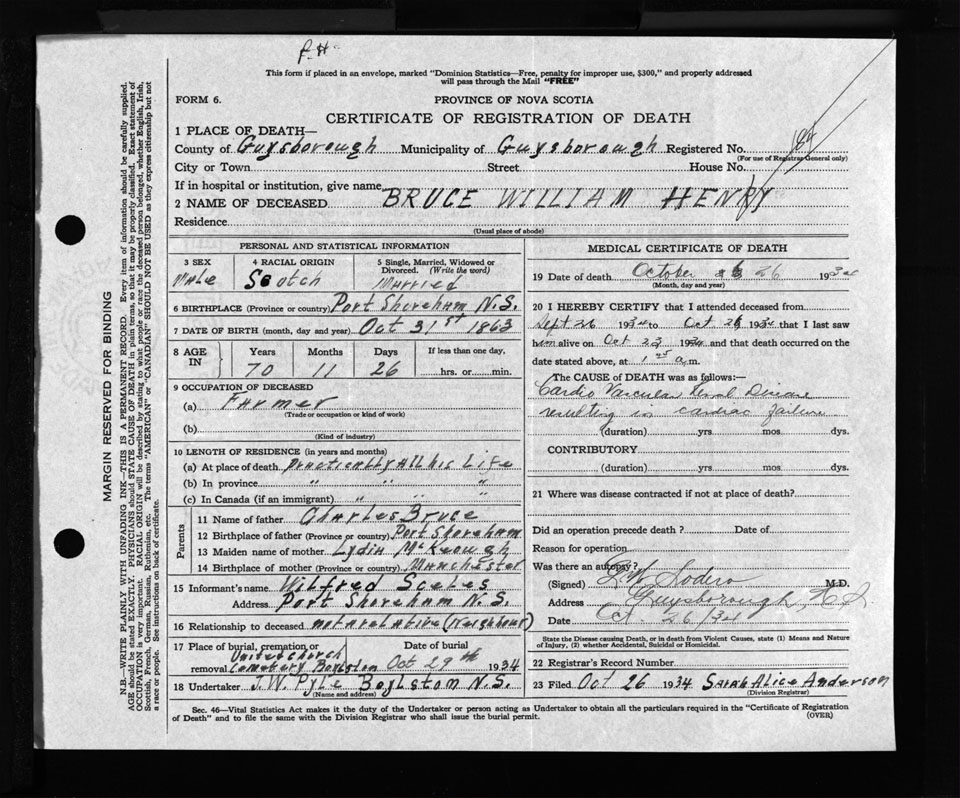 P.H.
This form if placed in an envelope, marked "Dominion Statistics—Free, penalty for improper use, $300," and properly addressed
will pass through the Mail "FREE"
FORM 6.
PROVINCE OF NOVA SCOTIA
CERTIFICATE OF REGISTRATION OF DEATH
1 PLACE OF DEATH—
County of Guysborough Municipality of Guysborough Registered No.
(For use of Registrar General only)
City or Town Street House No.
If in hospital or institution, give name
2 NAME OF DECEASED. BRUCE WILLIAM HENRY
Residence
(Usual place of abode)
PERSONAL AND STATISTICAL INFORMATION
3 SEX Male
4 RACIAL ORIGIN Scotch
5 Single, Married, Widowed or Divorced. (Write the word) Married
6 BIRTHPLACE (Province or country) Port Shoreham N.S.
7 DATE OF BIRTH (month, day and year) Oct 31st 1863
8 AGE IN Years Months Days If less than one day,
70 11 26 hrs. or min.
9 OCCUPATION OF DECEASED
(a) Farmer
(Trade or occupation or kind of work)
(b)
(Kind of industry)
10 LENGTH OF RESIDENCE (in years and months)
(a) At place of death. Practically All his Life
(b) In province " " "
(c) In Canada (if an immigrant) " " "
Parents
11 Name of father Charles Bruce
12 Birthplace of father (Province or country) Port Shoreham
13 Maiden name of mother Lydia McKeough
14 Birthplace of mother (Province or country) Manchester
15 Informant's name Wilfred Sceles
Address Port Shoreham N.S.
16 Relationship to deceased not a relative (Neighbour)
17 Place of burial, cremation or removal United Church Cemetery Boylston
Date of burial Oct 29th 1934
18 Undertaker J.W. Pyle Boylston N.S.
(Name and address)
MEDICAL CERTIFICATE OF DEATH
19 Date of death October 26 1934
(Month, day and year)
20 I HEREBY CERTIFY that I attended deceased from
Sept 26 1934 to Oct 26 1934 that I last saw
him alive on Oct 23 1934 and that death occurred on the
date stated above, at 1 a.m.
The CAUSE OF DEATH was as follows:—
Cardio Vascular Renal Disease
resulting in cardiac failure
(duration) yrs. mos. dys.
CONTRIBUTORY
(duration) yrs. mos. dys.
21 Where was disease contracted if not at place of death?
Did an operation precede death? Date of
Reason for operation
Was there an autopsy?
(Signed) Sodero M.D.
Address Guysborough, N.S.
Date Oct. 26/34
State the Disease causing Death, or in death from Violent Causes, state (1) Means and Nature
of Injury, (2) whether Accidental, Suicidal or Homicidal.
22 Registrar's Record Number
23 Filed Oct 26 1934 Sarah Alice Anderson
(Division Registrar)
Sec. 46—Vital Statistics Act makes it duty of the Undertaker or person acting as Undertaker to obtain all the particulars required in the "Certificate of Registration
of Death" and to file the same with the Division Registrar who shall issue the burial permit.
(OVER)
MARGIN RESERVED FOR BINDING
N.B.—WRITE PLAINLY WITH UNFADING INK—THIS IS A PERMANENT RECORD. Every item of information should be carefully supplied.
AGE should be stated EXACTLY. PHYSICIANS should STATE CAUSE OF DEATH in plain terms, so that it may be properly classified. Exact statement of
OCCUPATION is very important. RACIAL ORIGIN will be described by stating to what people or race the deceased person belonged, whether English, Irish,
Scottish, French, German, Russian, Ruthenian, etc. The terms "AMERICAN" or "CANADIAN" SHOULD NOT BE USED as they express citizenship but not
a race or people. See instructions on back of certificate.